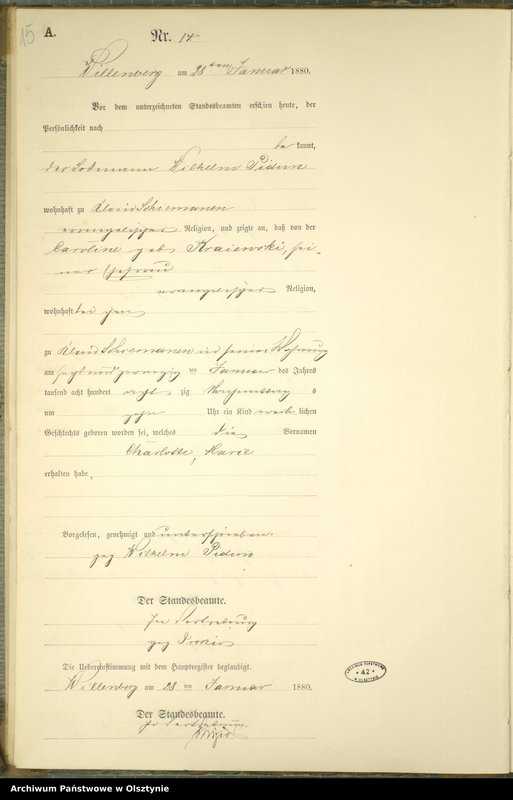 15
A.
Nr. 14
Willenberg am 28 ten Januar 1880.
Vor dem unterzeichneten Standesbeamten erschien heute, der
Persönlichkeit nach
be kannt,
der Losmann Wilhelm
wohnhaft zu Klein Schiemanen
evangelischer Religion, und zeigte an, daß von der
Caroline geb Kraiewski, sei-
ner Ehefrau
evangelischer Religion,
wohnhaft bei ihm
zu Klein Schiemanen in seiner Wohnung
am sechs und zwanzig ten Januar des Jahres
tausend acht hundert acht zig Nachmittag s
um zehn Uhr ein Kind weib lichen
Geschlechts geboren worden sei, welches die Vornamen
Charlotte, Marie
erhalten habe,
Vorgelesen, genehmigt und unterschrieben.
gez Wilhelm
Der Standesbeamte.
In Vertretung
gez
Die Uebereinstimmung mit dem Hauptregister beglaubigt.
Willenberg am 28 ten Januar 1880.
Der Standesbeamte.
In Vertretung.
ARCHIWUM PAŃSTWOWE
* 42 *
W OLSZTYNIE
Archiwum Państwowe w Olsztynie